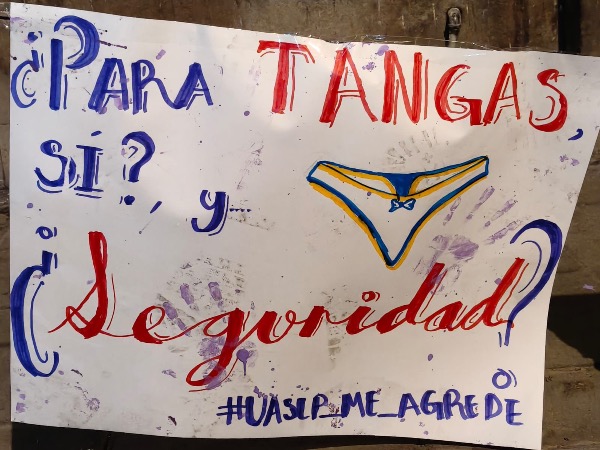 ¿PARA TANGAS,
SÍ?, y...
¿Seguridad?
#UASLP_ME_AGREDE